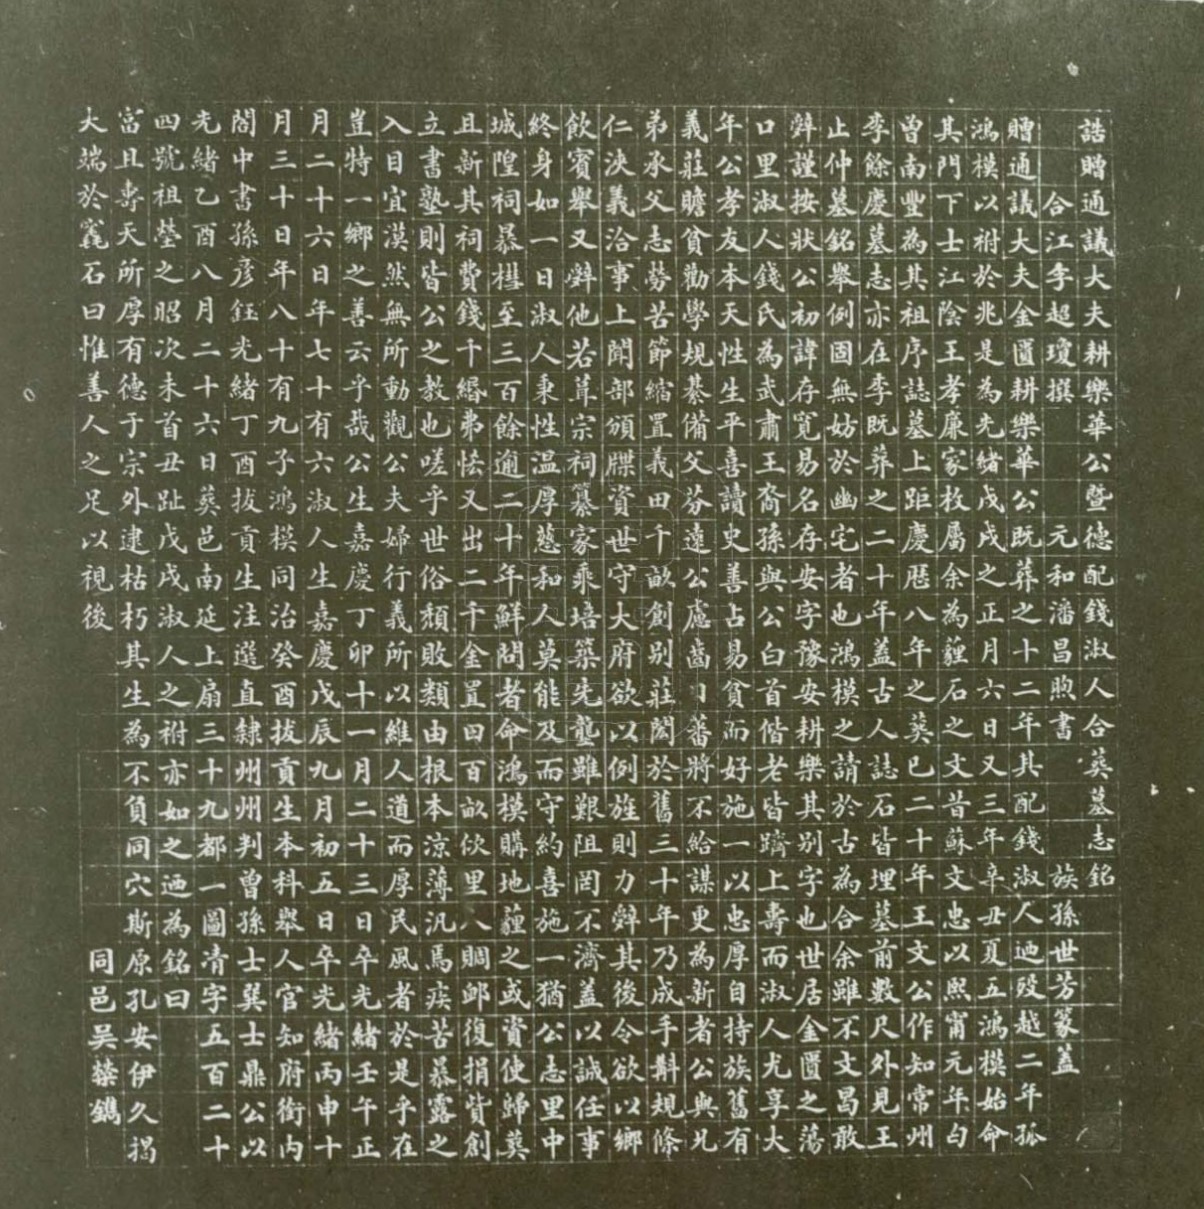 誥贈通議大夫耕樂華公暨德配錢淑人合葬墓志銘
合江李超瓊撰 元和潘昌煦書 族孫世芳篆蓋
贈通議大夫金匱耕樂華公既葬之十二年其配錢淑人迺歿越二年孤
鴻模以祔於兆是為光緒戊戌之正月六日又三年辛丑夏五鴻模始命
其門下士江陰王孝廉家枚屬余為薶石之文昔蘇文忠以熙甯元年白
曾南豐為其祖序誌墓上距慶厯八年之葬已二十年王文公作知常州
李餘慶墓志亦在李既葬之二十年蓋古人誌石皆埋墓前數尺外見王
止仲墓銘舉例固無妨於幽宅者也鴻模之請於古為合余雖不文曷敢
辤謹按狀公初諱存寬易名存安字豫安耕樂其别字也世居金匱之蕩
口里淑人錢氏為武肅王裔孫與公白首偕老皆躋上壽而淑人尤享大
年公孝友本天性生平喜讀史善占易貧而好施一以忠厚自持族舊有
義莊贍貧勸學規綦備父芬遠公慮齒日蕃將不給謀更為新者公與兄
弟承父志勞苦節縮置義田千畝創别莊閎於舊三十年乃成手斠規條
仁浹義洽事上聞部頒牒資世守大府欲以例旌則力辤其後令欲以鄉
飲賓舉又辤他若葺宗祠纂家乘培築先壟雖艱阻罔不濟蓋以誠任事
終身如一日淑人秉性温厚慈和人莫能及而守約喜施一猶公志里中
城隍祠暴槥至三百餘逾二十年鮮問者命鴻模購地薶之或資使歸葬
且新其祠費錢千緡弗恡又出二千金置田百畝佽里八賙䘏復捐貲創
立書塾則皆公之教也嗟乎世俗頹敗類由根本涼薄汎焉疾苦暴露之
入目宜漠然無所動觀公夫婦行義所以維人道而厚民風者於是乎在
豈特一鄉之善云乎哉公生嘉慶丁卯十一月二十三日卒光緒壬午正
月二十六日年七十有六淑人生嘉慶戊辰九月初五日卒光緒丙申十
月三十日年八十有九子鴻模同治癸酉拔貢生本科舉人官知府銜内
閣中書孫彥鈺光緒丁酉拔貢生注選直隸州州判曾孫士巽士鼎公以
光緒乙酉八月二十六日葬邑南延上扇三十九都一圖清字五百二十
四號祖塋之昭次未首丑趾戊戌淑人之祔亦如之迺為銘曰
富且壽天所厚有德于宗外逮枯朽其生為不負同穴斯原孔安伊久揭
大端於竁石曰惟善人之足以視後
同邑吳𣡡鐫